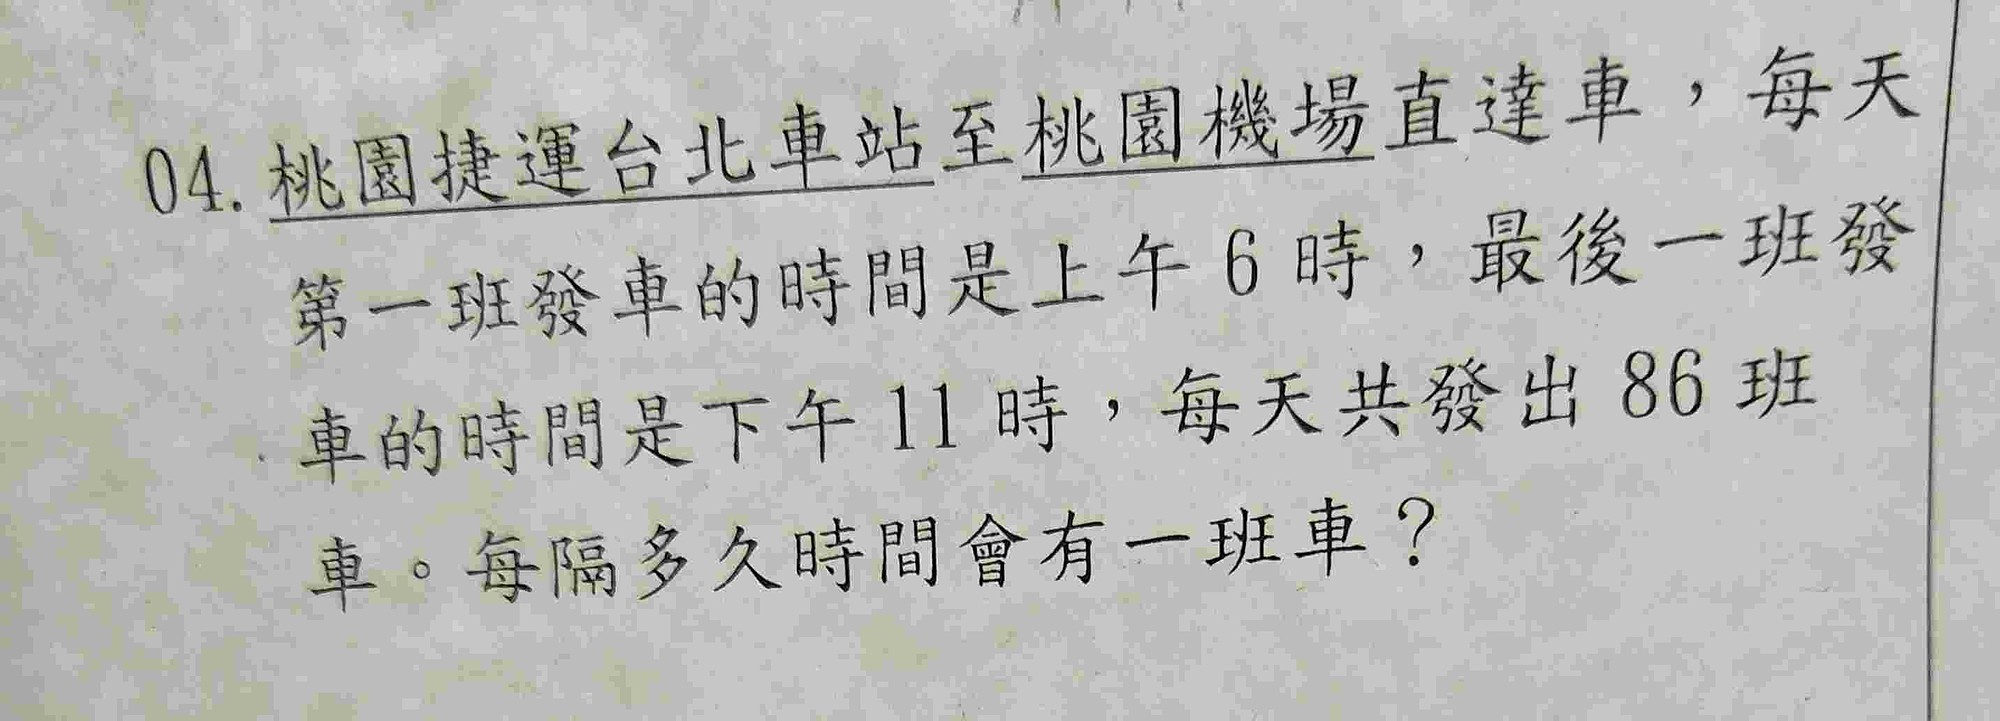 04. 桃園捷運台北車站至桃園機場直達車，每天
第一班發車的時間是上午 6 時，最後一班發
車的時間是下午 11 時，每天共發出 86 班
車。每隔多久時間會有一班車？